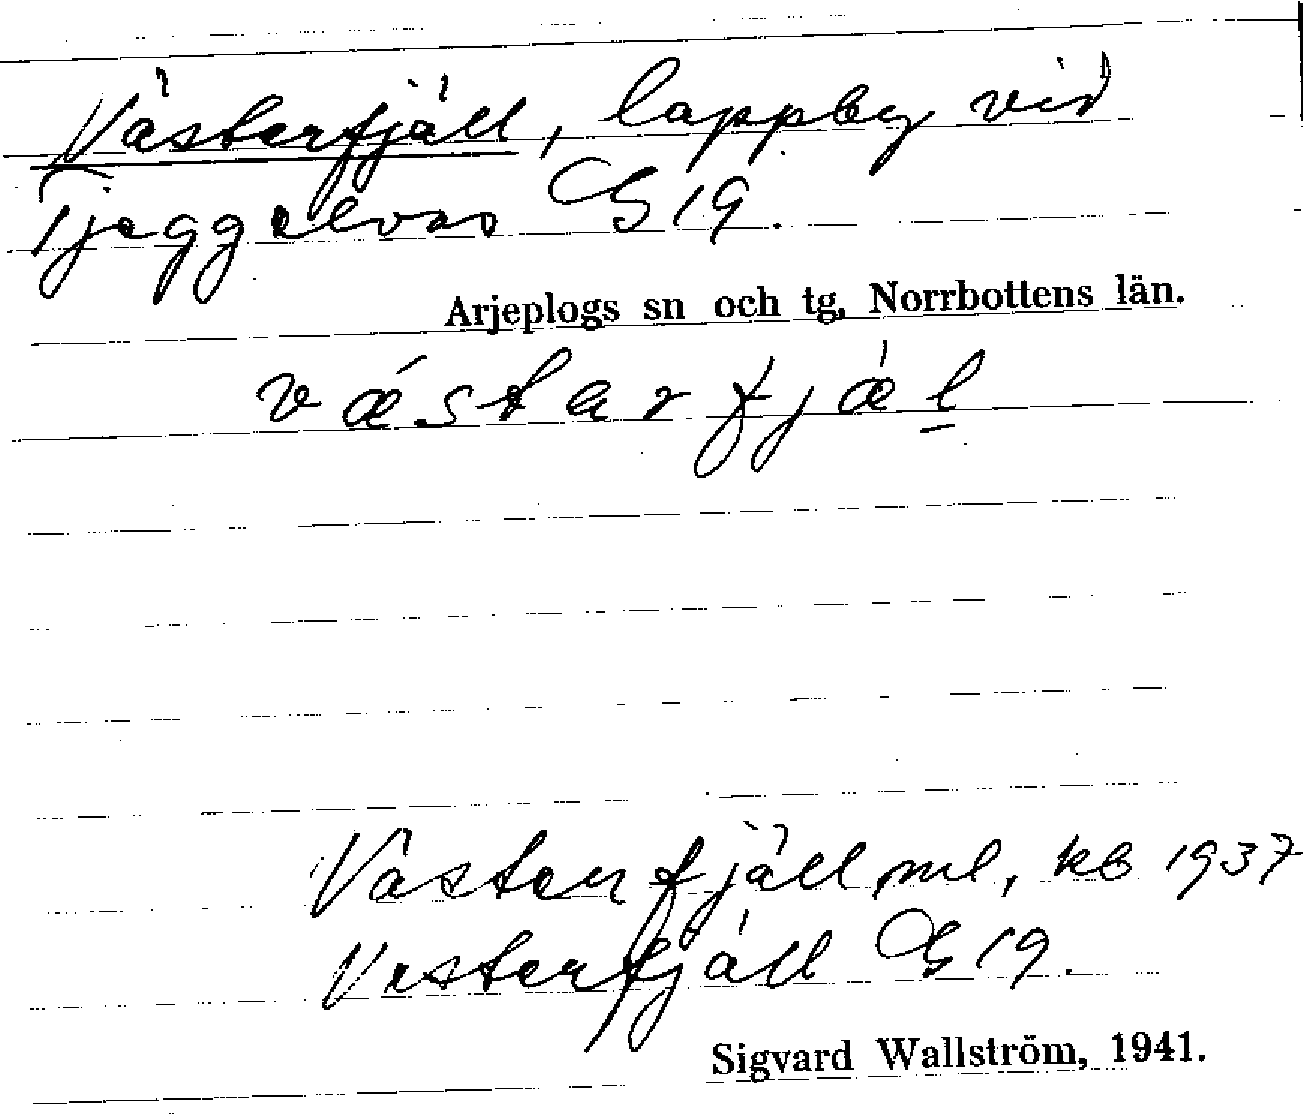 Västerfjäll, lappby vid
Tjeggelvas G 19.
Arjeplogs sn och tg, Norrbottens län.
vǽstarfjǽl
Västerfjäll ml, kb 1937
Vesterfjäll G 19.
Sigvard Wallström, 1941.